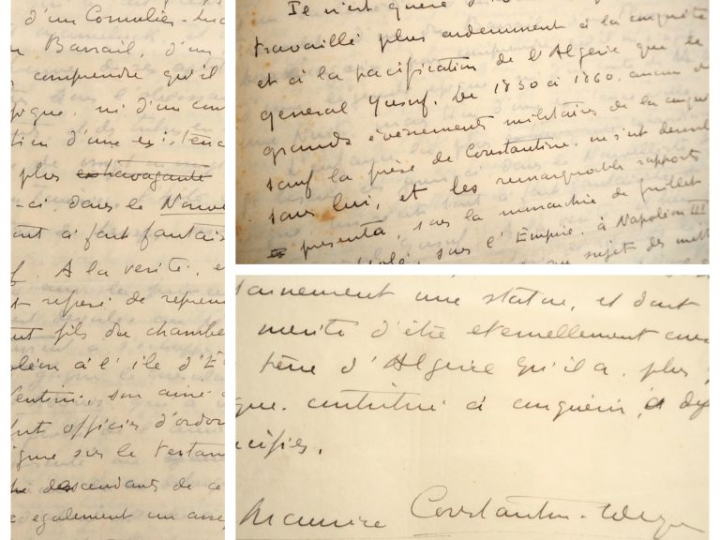 d'un Cornulier-Luc
Barrail, d'un
comprendre qu'il
ni d'un
d'une existenc
plus extravagante
-ci dans le Nouve
à fait fantais
f. A la verité, e
refusé de repren
fils du chambe
à l'île d'E
son ainé
officier d'ordon
sur le testam
descendants de ce
egalement un
Il n'est guère
travaillé plus ardemment à la conquête
et à la pacification de l'Algérie que le
général Yusuf. De 1830 à 1860, aucun d
grands évènements militaires de la conqu
sauf la prise de Constantine, ne s'est déroul
sans lui, et les remarquables rapports
présenta, sous la monarchie de juillet
sous l'Empire, à Napoléon III
au sujet des
ainement une statue, et dont
merite d'être eternellement
d'Algérie qu'il a, plus
que contribué à conquérir, à
cifier.
Maurice Constantin-Weyer